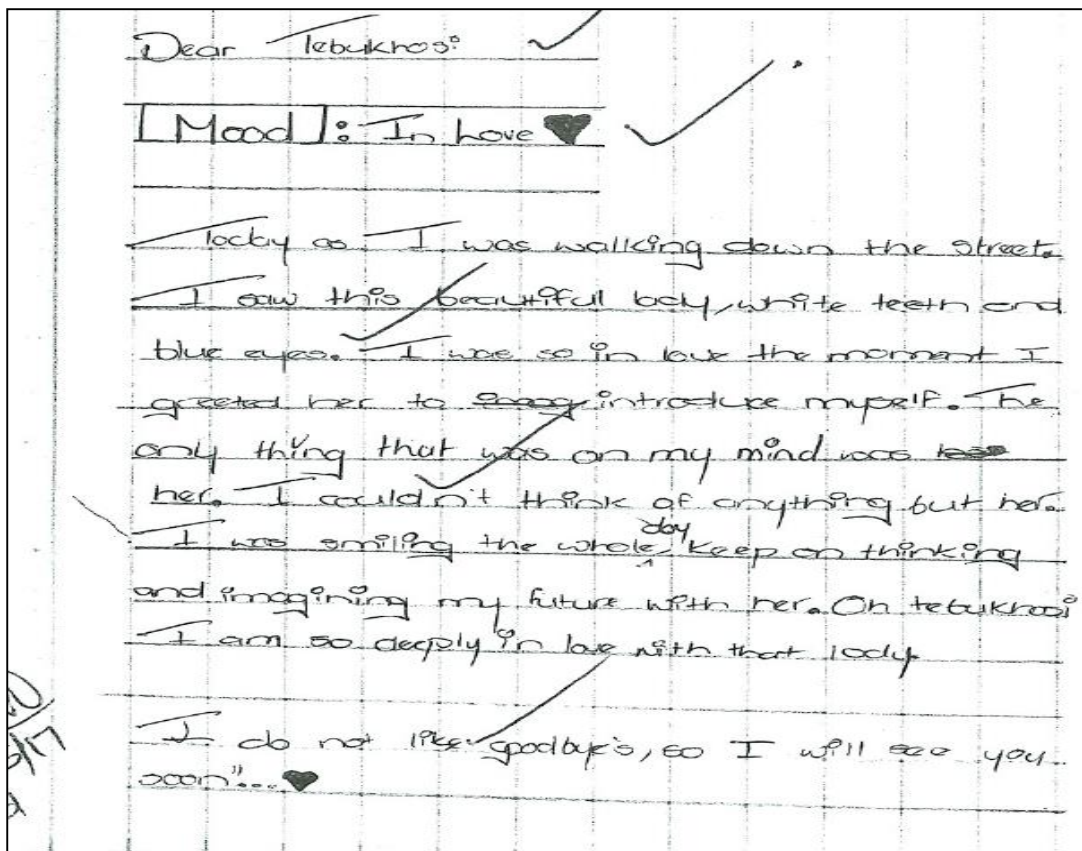 Dear Tebukhosi
[Mood]: In Love ♥
Today as I was walking down the street.
I saw this beautiful lady, white teeth and
blue eyes. I was so in love the moment I
greeted her to introduce myself. The
only thing that was on my mind was
her. I couldn't think of anything but her.
I was smiling the whole day, keep on thinking
and imagining my future with her. Oh tebukhosi
I am so deeply in love with that lady.
I do not like goodbye's, so I will see you
soon"... ♥